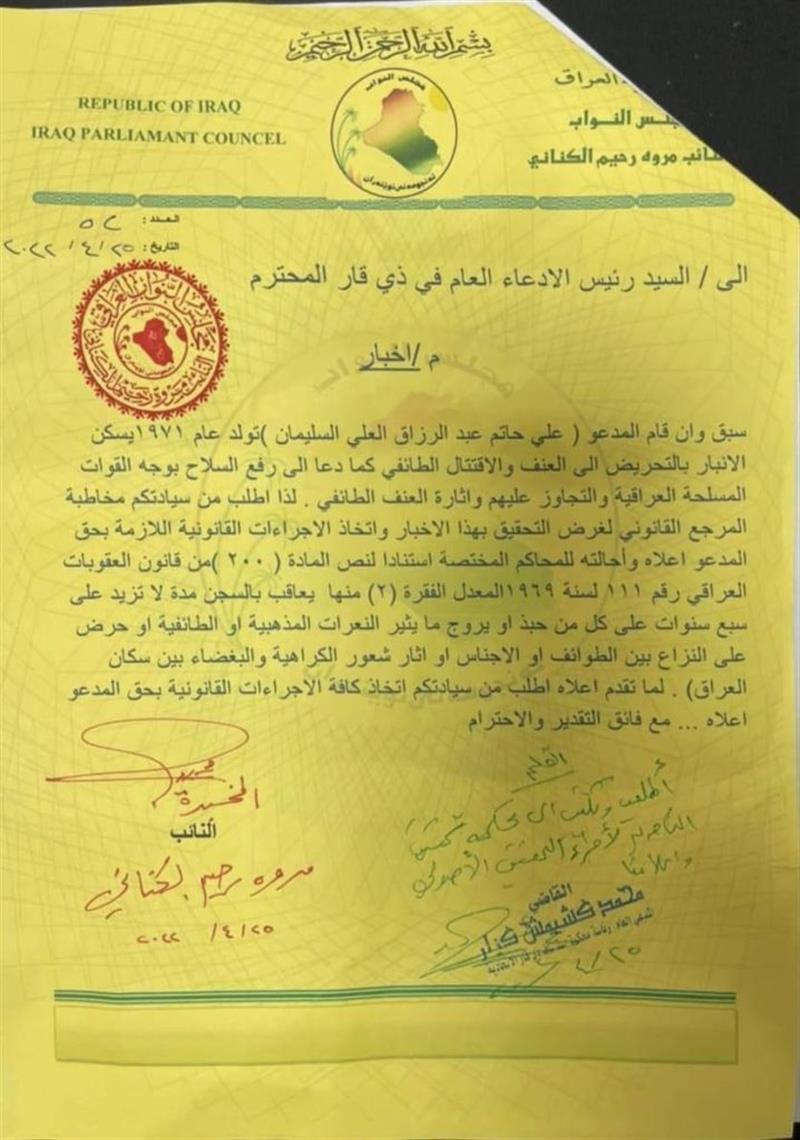 بسم الله الرحمن الرحيم
REPUBLIC OF IRAQ
IRAQ PARLIAMANT COUNCEL
العراق
النواب
مروه رحيم الكناني
مجلس النواب
العدد: ٥٢
التاريخ: ٢٥ / ٤ / ٢٠٢٢
الى / السيد رئيس الادعاء العام في ذي قار المحترم
م / اخبار
سبق وان قام المدعو ( علي حاتم عبد الرزاق العلي السليمان )تولد عام ١٩٧١يسكن
الانبار بالتحريض الى العنف والاقتتال الطائفي كما دعا الى رفع السلاح بوجه القوات
المسلحة العراقية والتجاوز عليهم واثارة العنف الطائفي . لذا اطلب من سيادتكم مخاطبة
المرجع القانوني لغرض التحقيق بهذا الاخبار واتخاذ الاجراءات القانونية اللازمة بحق
المدعو اعلاه وأحالته للمحاكم المختصة استنادا لنص المادة ( ٢٠٠ )من قانون العقوبات
العراقي رقم ١١١ لسنة ١٩٦٩المعدل الفقرة (٢) منها يعاقب بالسجن مدة لا تزيد على
سبع سنوات على كل من حبذ او يروج ما يثير النعرات المذهبية او الطائفية او حرض
على النزاع بين الطوائف او الاجناس او اثار شعور الكراهية والبغضاء بين سكان
العراق) . لما تقدم اعلاه اطلب من سيادتكم اتخاذ كافة الاجراءات القانونية بحق المدعو
اعلاه ... مع فائق التقدير والاحترام
النائب
مروه رحيم الكناني
٢٥ / ٤ / ٢٠٢٢
القاضي
محمد
٢٥ / ٤